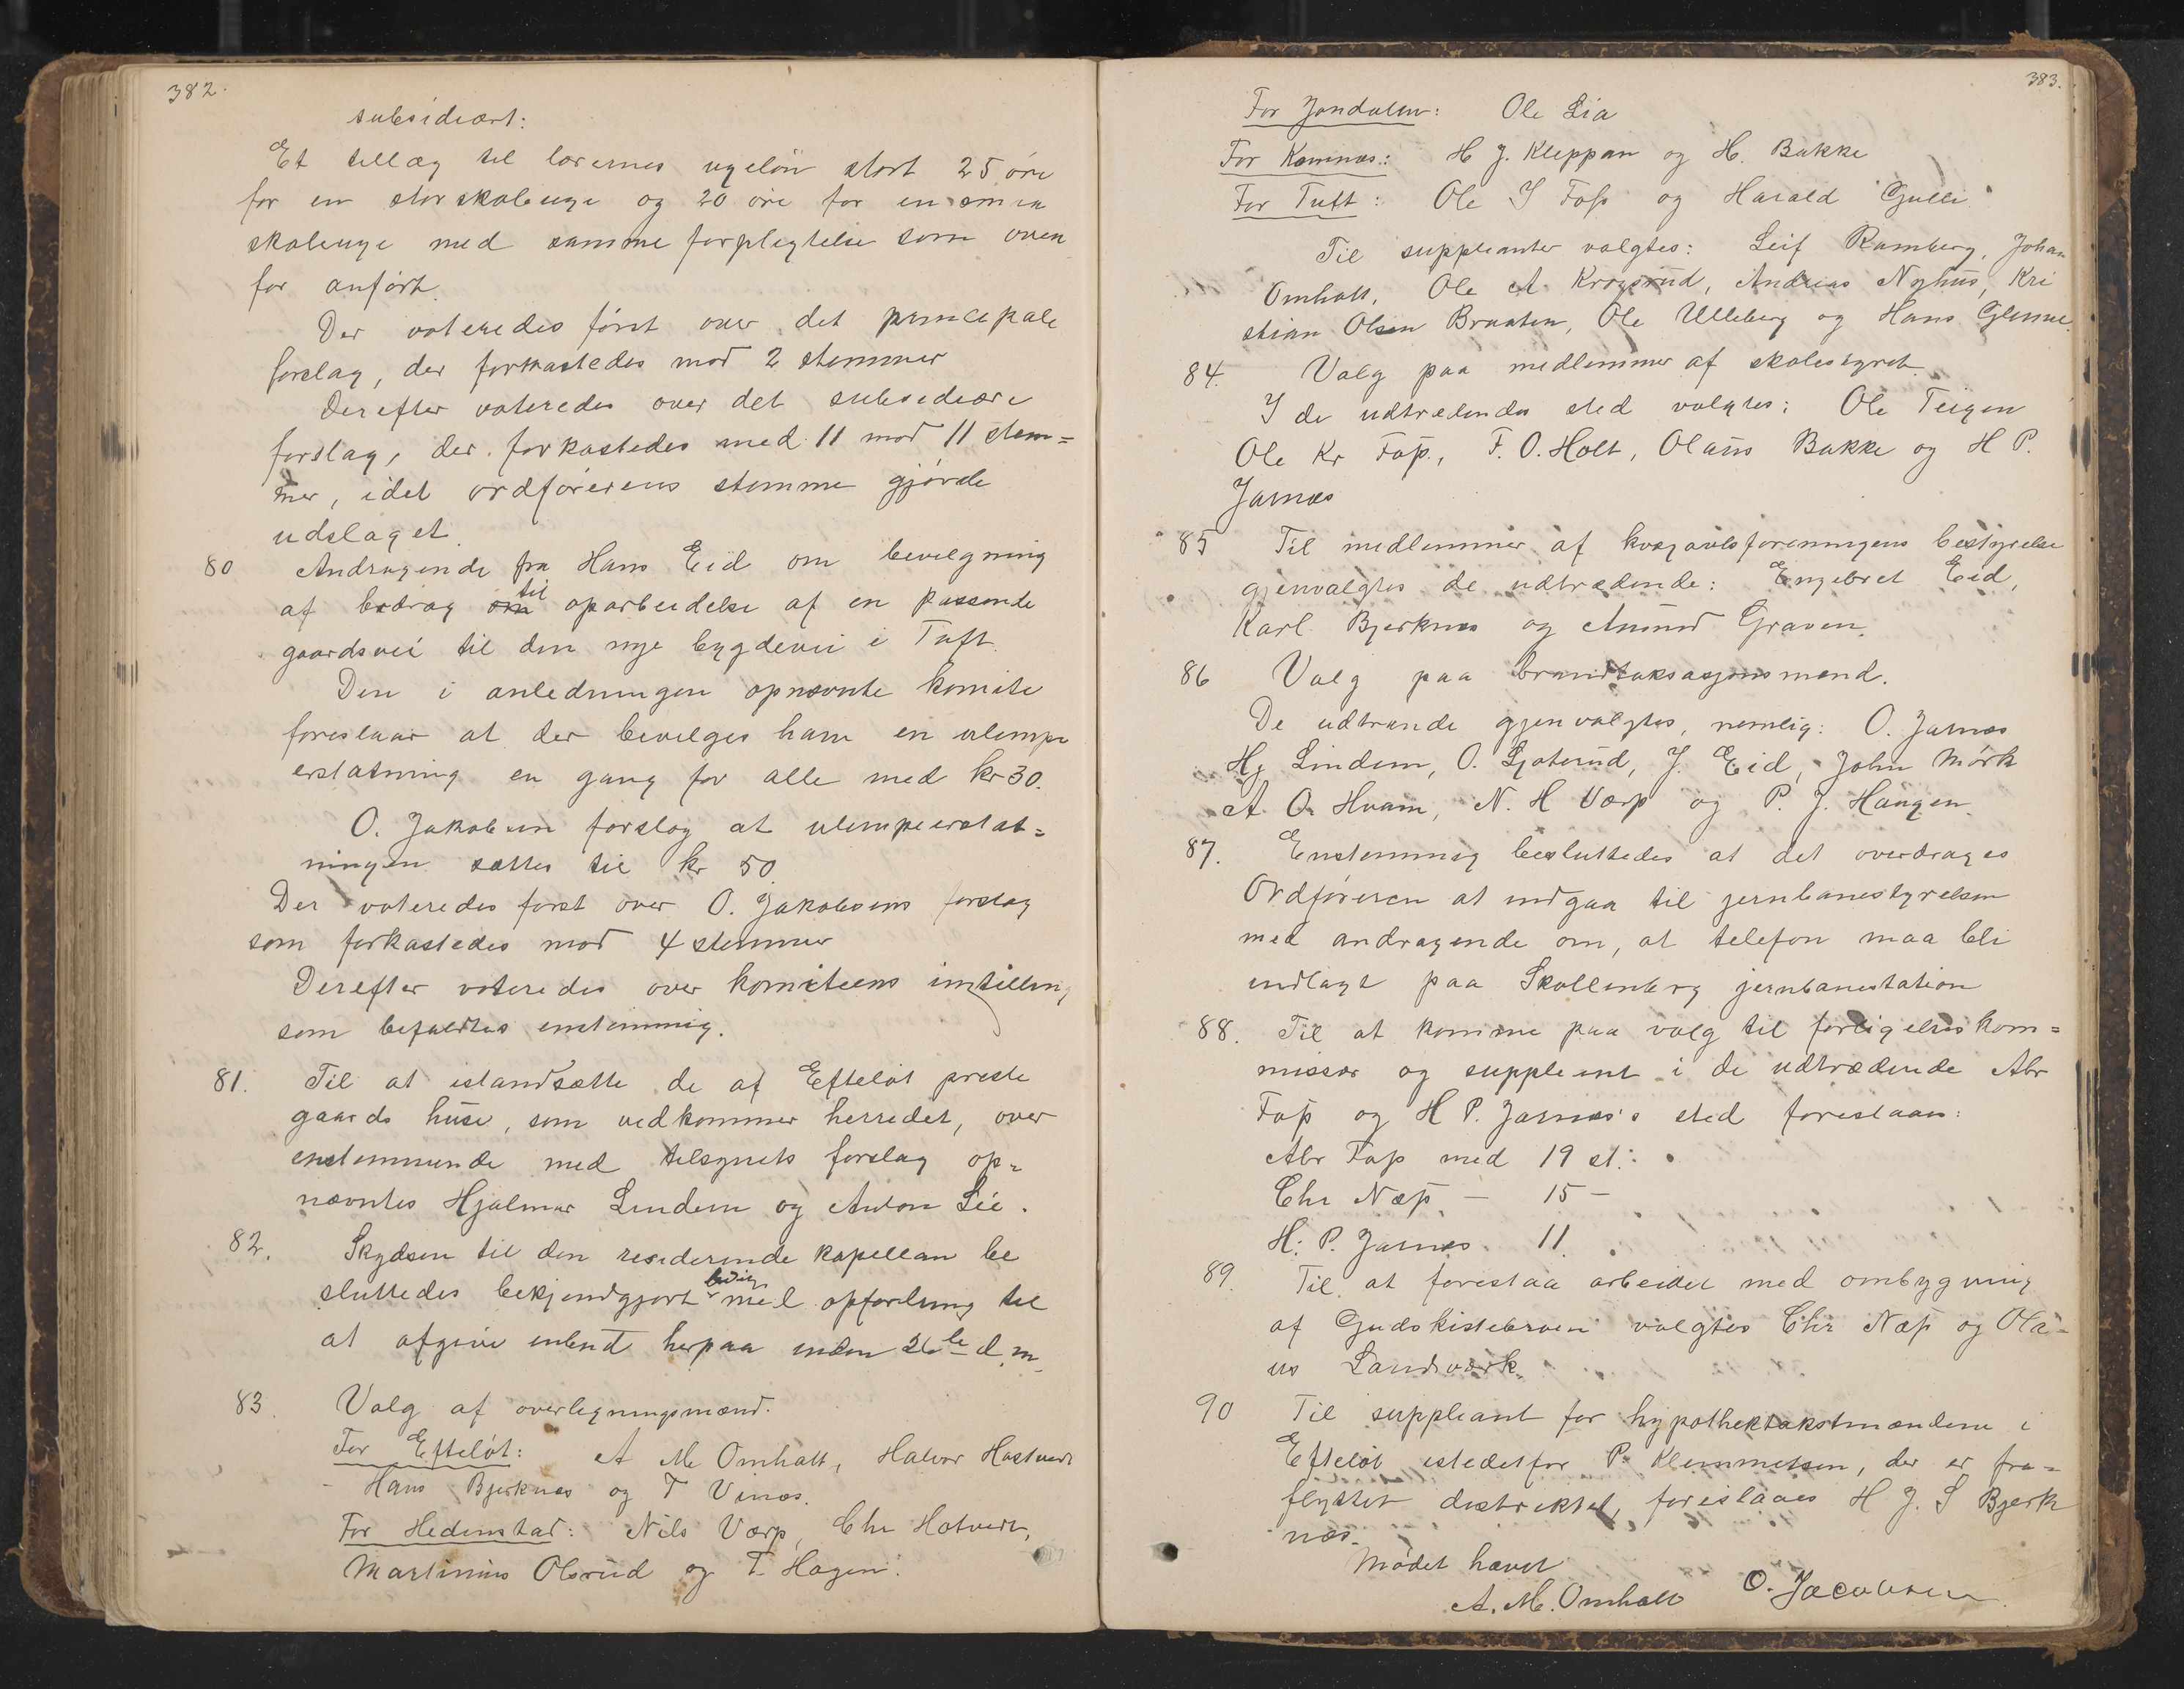 382.
subsidiært:
Et tillæg til lærernes ugeløn stort 25 øre
for en storskoleuge og 20 øre for en smaa
skoleuge med samme forpligtelse som oven
for anført.
Der voteredes først over det principale
forslag, der forkastedes mod 2 stemmer
Derefter voteredes over det subsidiære
forslag, der forkastedes med 11 mod 11 stem=
mer, idet ordførerens stemme gjørde
udslaget.
80 Andragende fra Hans Eid om bevilgning
af bidrag til oparbeidelse af en passende
gaardsvei til den nye bygdevei i Tuft.
Den i anledningen opnævnte komite
foreslaar at der bevilges ham en ulempe
erstatning en gang for alle med kr 30.
O. Jakobsen forslog at ulempeerstat=
ningen sættes til kr 50.
Der voteredes først over O. Jakobsens forslag
som forkastedes mod 4 stemmer
Derefter voteredes over komiteens instilling
som bifaldtes enstemmig.
81. Til at istandsætte de af Efteløt preste
gaards huse, som vedkommer herredet, over
enstemmende med tilsynets forslag op=
nævntes Hjalmar Lindem og Anton Lie.
82. Skydsen til den residerende kapellan be
sluttedes bekjendtgjort ledig med opfordring til
at afgive anbud herpaa inden 26de d. m.
83. Valg af overligningsmænd.
For Efteløt: A M Omholt, Halvor Hostvedt
- Hans Bjerknæs og T Vinæs.
For Hedenstad: Nils Værp, Chr Hotvedt,
Martinius Olsrud og T. Hagen.
383.
For Jondalen: Ole Lia
For Komnæs: H J. Kleppan og H. Bakke
For Tuft: Ole I Foss og Harald Gulli
Til suppleanter valgtes: Leif Ramberg, Johan
Omholt, Ole A Krogsrud, Andreas Nyhus, Kri
stian Olsen Braaten, Ole Ulleberg og Hans Glenne.
84. Valg paa medlemmer af skolestyret.
I de udtrædendes sted valgtes: Ole Teigen
Ole Kr Foss, F. O. Holt, Olaus Bakke og H P.
Jarnæs
85 Til medlemmer af kvægavlsforeningens bestyrelse
gjenvalgtes de udtrædende: Engebret Eid,
Karl Bjerknæs og Amund Graven.
86 Valg paa brandtaksasjonsmænd.
De udtrædende gjenvalgtes, nemlig: O. Jarnæs
Hj Lindem, O. Ljoterud, J. Eid, John Mørk
A. O. Hvam, N. H Værp og P. J. Haugen.
87. Enstemmig besluttedes at det overdrages
Ordføreren at indgaa til jernbanestyrelsen
med andragende om, at telefon maa bli
indlagt paa Skollenborg jernbanestation
88. Til at komme paa valg til forligelseskom=
missær og suppleant i de udtrædende Abr
Foss og H P. Jarnæs's sted foreslaaes:
Abr Foss med 19 st.:
Chr Næss - 15 -
H. P. Jarnæs 11.
89. Til at forestaa arbeidet med ombygning
af Gudskistebroen valgtes Chr Næss og Ola=
us Landsværk.
90 Til suppleant for hypothektakstmændene i
Efteløt istedetfor P. Klemmetsen, der er fra=
flyttet distriktet, foreslaaes H J. S Bjerk
næs.
Mødet hævet
A. M. Omholt O. Jacobsen